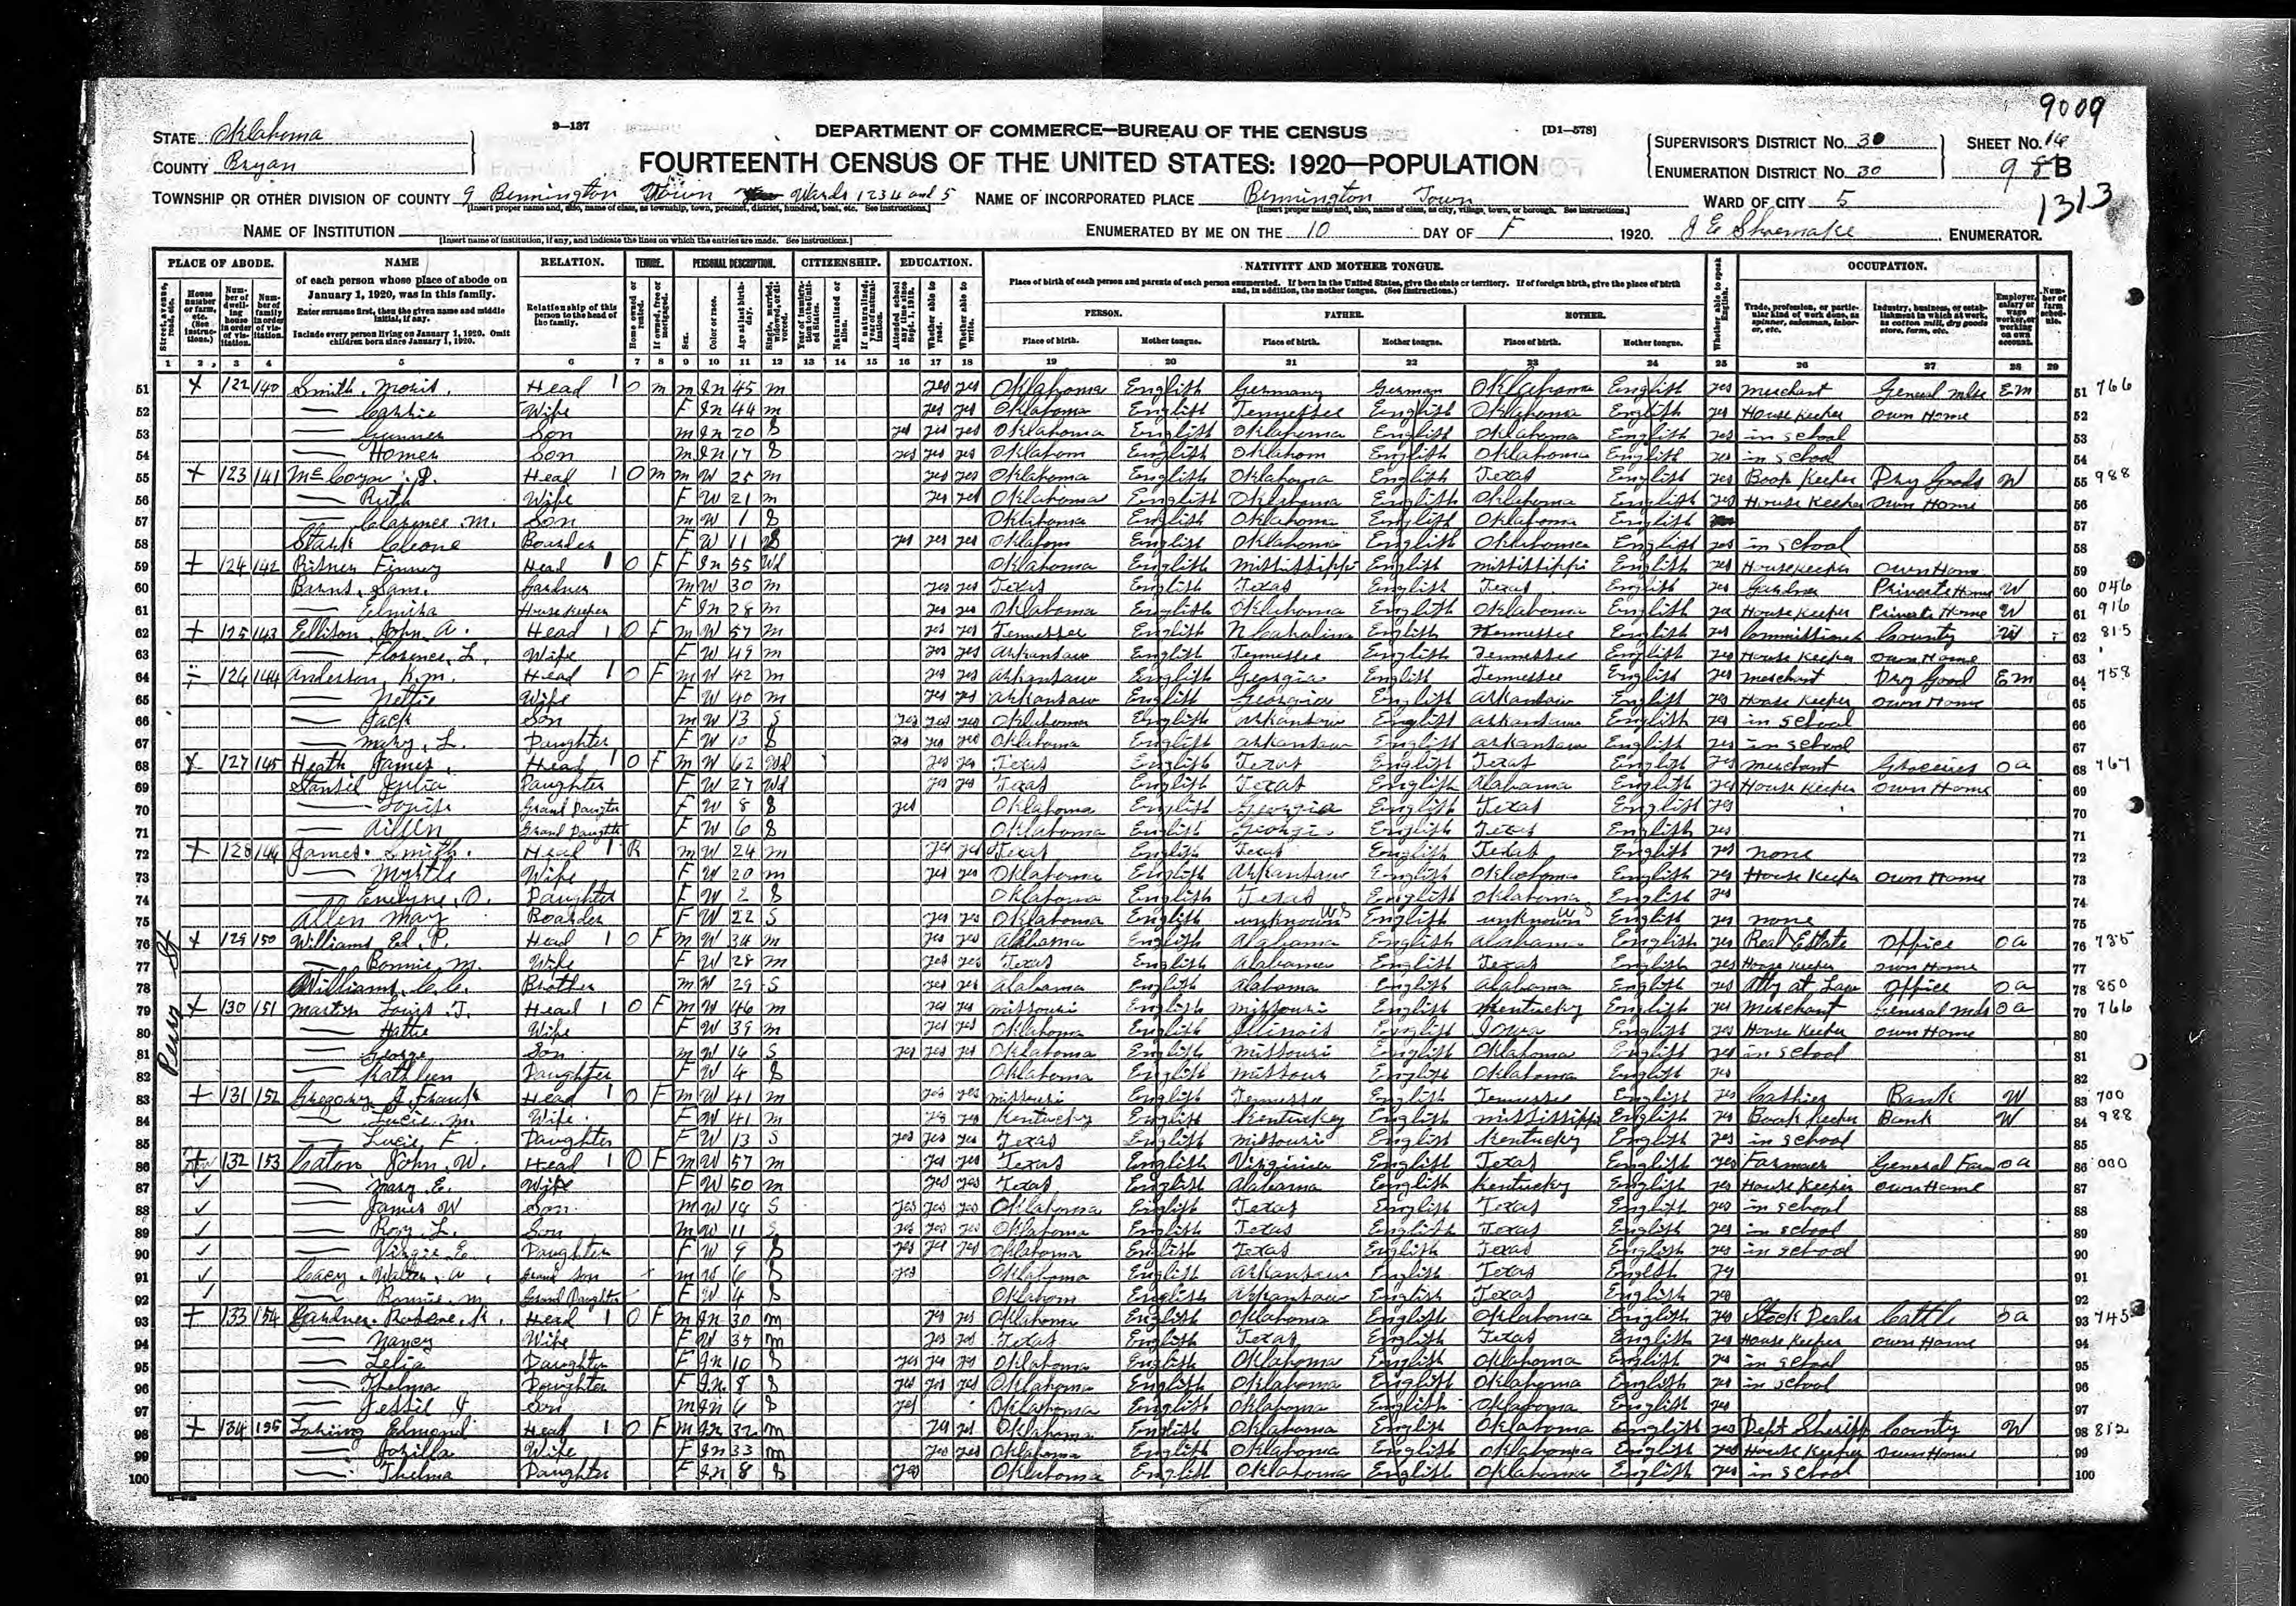 9009
STATE Oklahoma
9—137
DEPARTMENT OF COMMERCE—BUREAU OF THE CENSUS
[D1—578]
SUPERVISOR'S DISTRICT No. 30
SHEET No. 14
COUNTY Bryan
FOURTEENTH CENSUS OF THE UNITED STATES: 1920—POPULATION
ENUMERATION DISTRICT No. 30
9 8 B
1313
TOWNSHIP OR OTHER DIVISION OF COUNTY 9 Bennington Town Wards 1 2 3 4 and 5
NAME OF INCORPORATED PLACE Bennington Town
WARD OF CITY 5
[Insert proper name and, also, name of class, as township, town, precinct, district, hundred, beat, etc. See instructions.]
[Insert proper name and, also, name of class, as city, village, town, or borough. See instructions.]
NAME OF INSTITUTION
[Insert name of institution, if any, and indicate the lines on which the entries are made. See instructions.]
ENUMERATED BY ME ON THE 10 DAY OF F, 1920. J E Shoemake ENUMERATOR.
PLACE OF ABODE. NAME RELATION. TENURE. PERSONAL DESCRIPTION. CITIZENSHIP. EDUCATION. NATIVITY AND MOTHER TONGUE. OCCUPATION.
of each person whose place of abode on January 1, 1920, was in this family.
Enter surname first, then the given name and middle initial, if any.
Include every person living on January 1, 1920. Omit children born since January 1, 1920.
Relationship of this person to the head of the family.
Place of birth of each person and parents of each person enumerated. If born in the United States, give the state or territory. If of foreign birth, give the place of birth and, in addition, the mother tongue. (See instructions.)
PERSON. FATHER. MOTHER.
Place of birth. Mother tongue. Place of birth. Mother tongue. Place of birth. Mother tongue.
1 2 3 4 5 6 7 8 9 10 11 12 13 14 15 16 17 18 19 20 21 22 23 24 25 26 27 28 29
51 122 140 Smith, Moris. Head 1 O m m In 45 m yes yes Oklahoma English Germany German Oklahoma English yes merchant General mdse Em 51 766
52 Wife F In 44 m yes yes Oklahoma English Tennessee English Oklahoma English yes House Keeper own Home 52
53 Son m In 20 S yes yes yes Oklahoma English Oklahoma English Oklahoma English yes in school 53
54 Homer Son m In 17 S yes yes yes Oklahom English Oklahom English Oklahoma English yes in school 54
55 123 141 Head 1 O m m W 25 m yes yes Oklahoma English Oklahoma English Texas English yes Book Keeper Dry Goods W 55 988
56 Ruth Wife F W 21 m yes yes Oklahoma English Oklahoma English Oklahoma English yes House Keeper own Home 56
57 Clarence M. Son m W 1 S Oklahoma English Oklahoma English Oklahoma English 57
58 Stark Cleone Boarder F W 11 S yes yes yes Oklahom English Oklahoma English Oklahoma English yes in school 58
59 124 142 Head 1 O F F In 55 Wd Oklahoma English Mississippi English mississippi English yes Housekeeper own Home 59
60 Barns, Sam. Gardner m W 30 m yes yes Texas English Texas English Texas English yes Gardner Private Home W 60 046
61 Elmira House Keeper F In 28 m yes yes Oklahoma English Oklahoma English Oklahoma English yes House Keeper Private Home W 61 916
62 125 143 Ellison, John A. Head 1 O F m W 57 m yes yes Tennessee English N Carolina English Tennessee English yes Commissioner County W 62 815
63 Florence, L. Wife F W 49 m yes yes arkansaw English Tennessee English Tennessee English yes House Keeper own Home 63
64 126 144 Anderson, R.M. Head 1 O F m W 42 m yes yes arkansaw English Georgia English Tennessee English yes merchant Dry Good Em 64 758
65 Nettie Wife F W 40 m yes yes arkansaw English Georgia English arkansaw English yes House Keeper own Home 65
66 Jack Son m W 13 S yes yes yes Oklahoma English arkansaw English arkansaw English yes in school 66
67 Mary, L. Daughter F W 10 S yes yes yes Oklahoma English arkansaw English arkansaw English yes in school 67
68 127 145 Heath James. Head 1 O F m W 62 Wd yes yes Texas English Texas English Texas English yes merchant Groceries oa 68 767
69 Stansel Julia Daughter F W 27 Wd yes yes Texas English Texas English Alabama English yes House Keeper own Home 69
70 Grand Daugter F W 8 S yes Oklahoma English Georgia English Texas English yes 70
71 Aileen Grand Daughter F W 6 S Oklahoma English Georgia English Texas English yes 71
72 128 James. Smith. Head 1 R m W 24 m yes yes Texas English Texas English Texas English yes none 72
73 Myrtle Wife F W 20 m yes yes Oklahoma English Arkansaw English Oklahoma English yes House Keeper own Home 73
74 Daughter F W 2 S Oklahoma English Texas English Oklahoma English yes 74
75 Allen May Boarder F W 22 S yes yes Oklahoma English unknown U S English unknown U S English yes none 75
76 129 150 Williams, Ed. P. Head 1 O F m W 34 m yes yes Alabama English Alabama English Alabama English yes Real Estate Office oa 76 735
77 Bonnie, M. Wife F W 28 m yes yes Texas English Alabama English Texas English yes House Keeper own Home 77
78 Williams, C.C. Brother m W 29 S yes yes Alabama English Alabama English Alabama English yes Atty at Law Office oa 78 850
79 130 151 Martin Louis T. Head 1 O F m W 46 m yes yes missouri English missouri English Kentucky English yes Merchant General mds oa 79 766
80 Hattie Wife F W 39 m yes yes Oklahoma English Illinois English Iowa English yes House Keeper own Home 80
81 George Son m W 16 S yes yes yes Oklahoma English Missouri English Oklahoma English yes in school 81
82 Kathleen Daughter F W 4 S Oklahoma English Missouri English Oklahoma English yes 82
83 131 152 Gregory J. Frank Head 1 O F m W 41 m yes yes missouri English Tennessee English Tennessee English yes Cashier Bank W 83 700
84 Lucie M. Wife F W 41 m yes yes Kentucky English Kentucky English Mississippi English yes Book Keeper Bank W 84 988
85 Lucie F. Daughter F W 13 S yes yes yes Texas English Missouri English Kentucky English yes in school 85
86 132 153 Caton John, W. Head 1 O F m W 57 m yes yes Texas English Virginia English Texas English yes Farmer General Farm oa 86 000
87 Mary E. Wife F W 50 m yes yes Texas English Alabama English Kentucky English yes House Keeper own Home 87
88 James W Son m W 14 S yes yes yes Oklahoma English Texas English Texas English yes in school 88
89 Roy L. Son m W 11 S yes yes yes Oklahoma English Texas English Texas English yes in school 89
90 Virgie E. Daughter F W 9 S yes yes yes Oklahoma English Texas English Texas English yes in school 90
91 Cacy, Walter, A Grand Son m W 6 S yes Oklahoma English Arkansaw English Texas English yes 91
92 Bonnie, M Grand Daughter F W 4 S Oklahom English Arkansaw English Texas English yes 92
93 133 154 Gardner. K. Head 1 O F m In 30 m yes yes Oklahoma English Oklahoma English Oklahoma English yes Stock Dealer Cattle oa 93 745
94 Nancy Wife F W 35 m yes yes Texas English Texas English Texas English yes House Keeper own Home 94
95 Lelia Daughter F In 10 S yes yes yes Oklahoma English Oklahoma English Oklahoma English yes in school 95
96 Thelma Daughter F In 8 S yes yes yes Oklahoma English Oklahoma English Oklahoma English yes in school 96
97 Son m In 6 S yes Oklahoma English Oklahoma English Oklahoma English yes 97
98 134 155 Edmond Head 1 O F m In 32 m yes yes Oklahoma English Oklahoma English Oklahoma English yes Dept Sheriff County W 98 812
99 Wife F In 33 m yes yes Oklahoma English Oklahoma English Oklahoma English yes House Keeper own Home 99
100 Thelma Daughter F In 8 S yes Oklahoma English Oklahoma English Oklahoma English yes in school 100